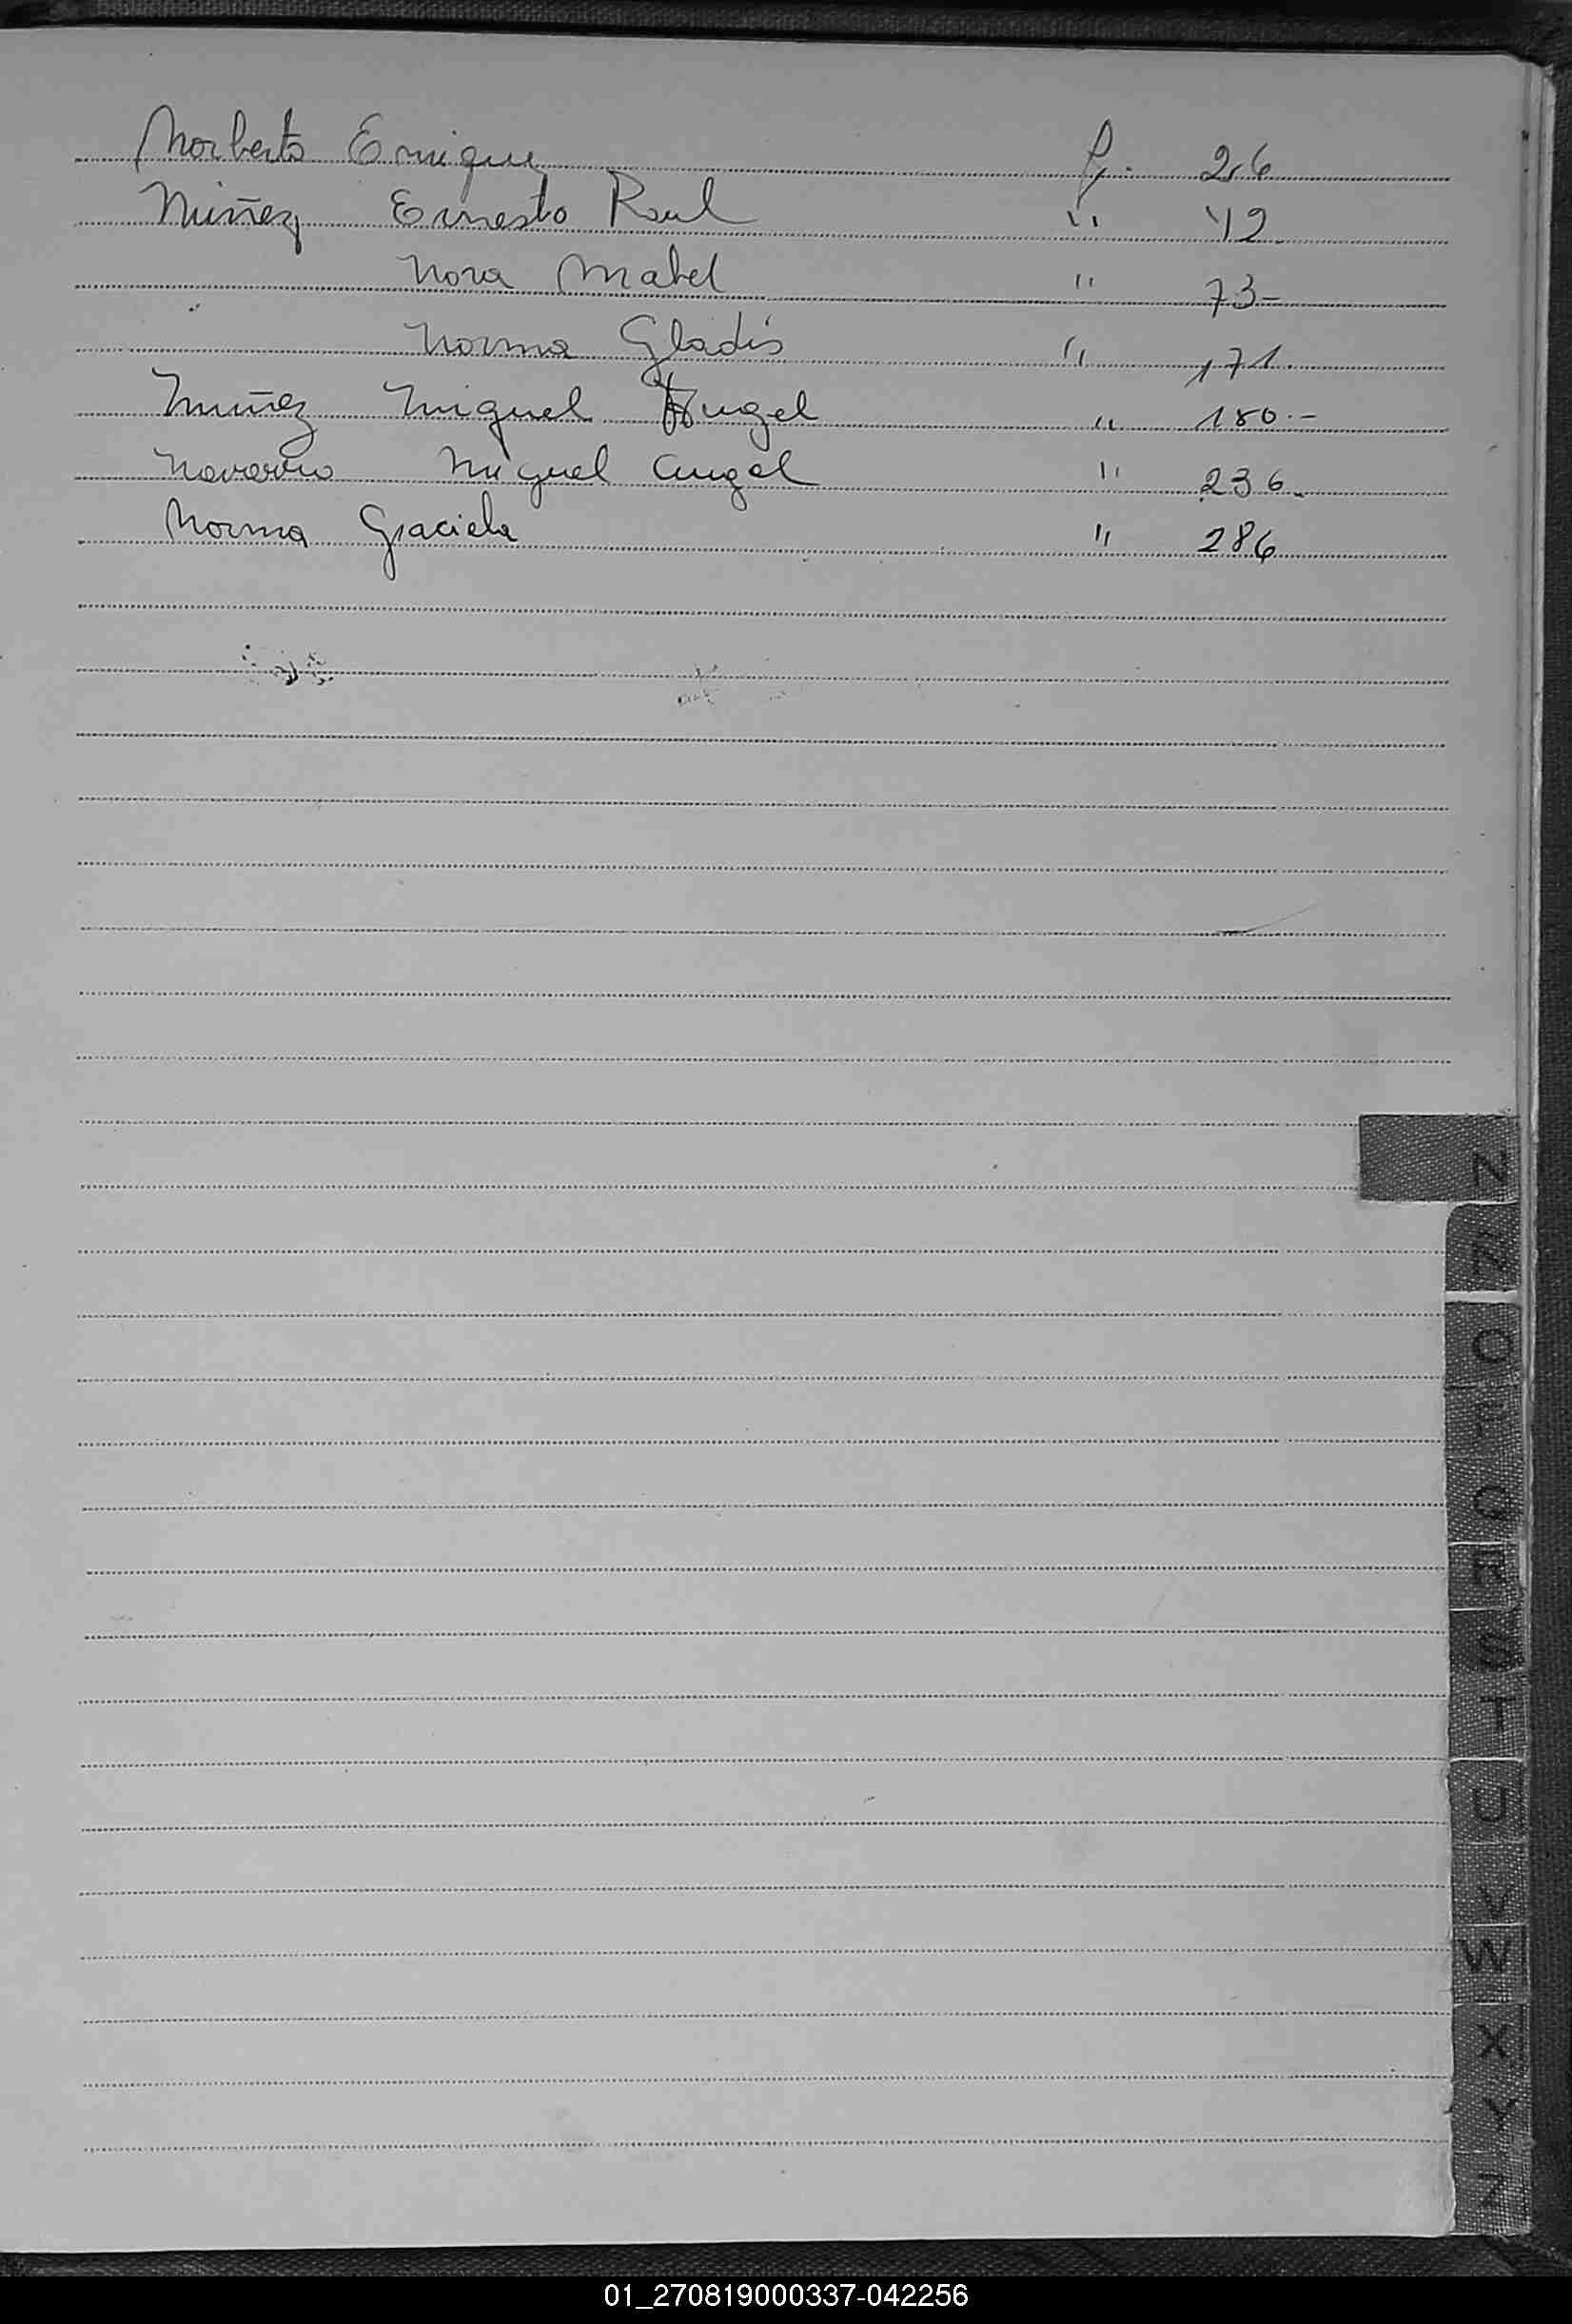 Norberto Enrique f. 26
Nuñez Ernesto Raul " 42
Nora Mabel " 73-
Norma Gladis " 171.
Nuñez Miguel Angel " 180.-
Navarro Miguel Angel " 236.
Norma Graciela " 286
N
Ñ
O
P
Q
R
S
T
U
V
W
X
Y
Z
01_270819000337-042256